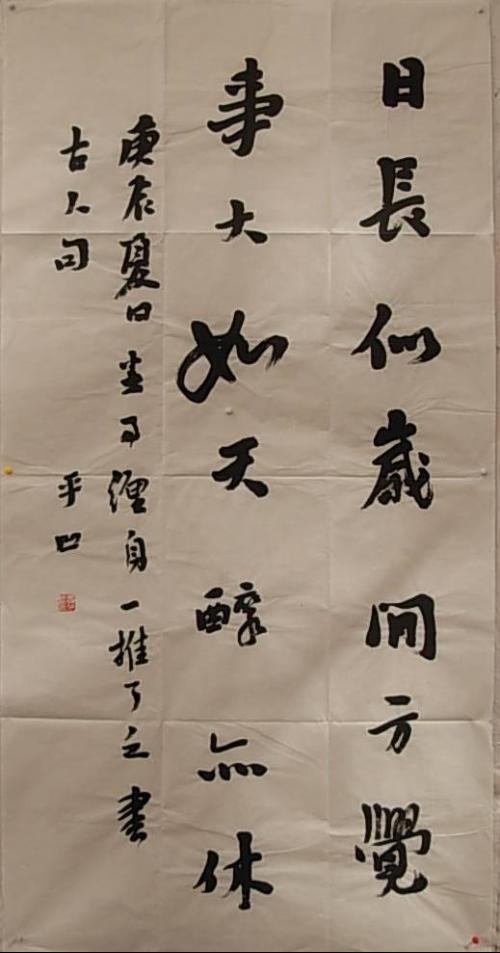 日長似歲閒方覺
事大如天醉亦休
庚辰夏日事纏身一推了之書
古人句 平凹